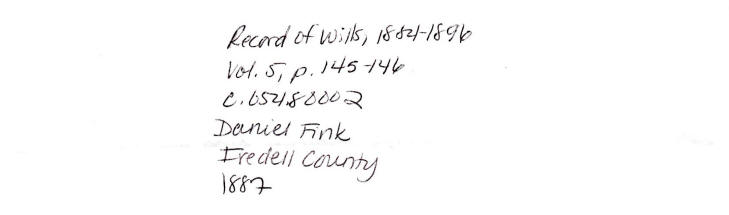 Record of Wills, 1884-1896
Vol. 5, p. 145-146
C.054.80002
Daniel Fink
Iredell County
1887